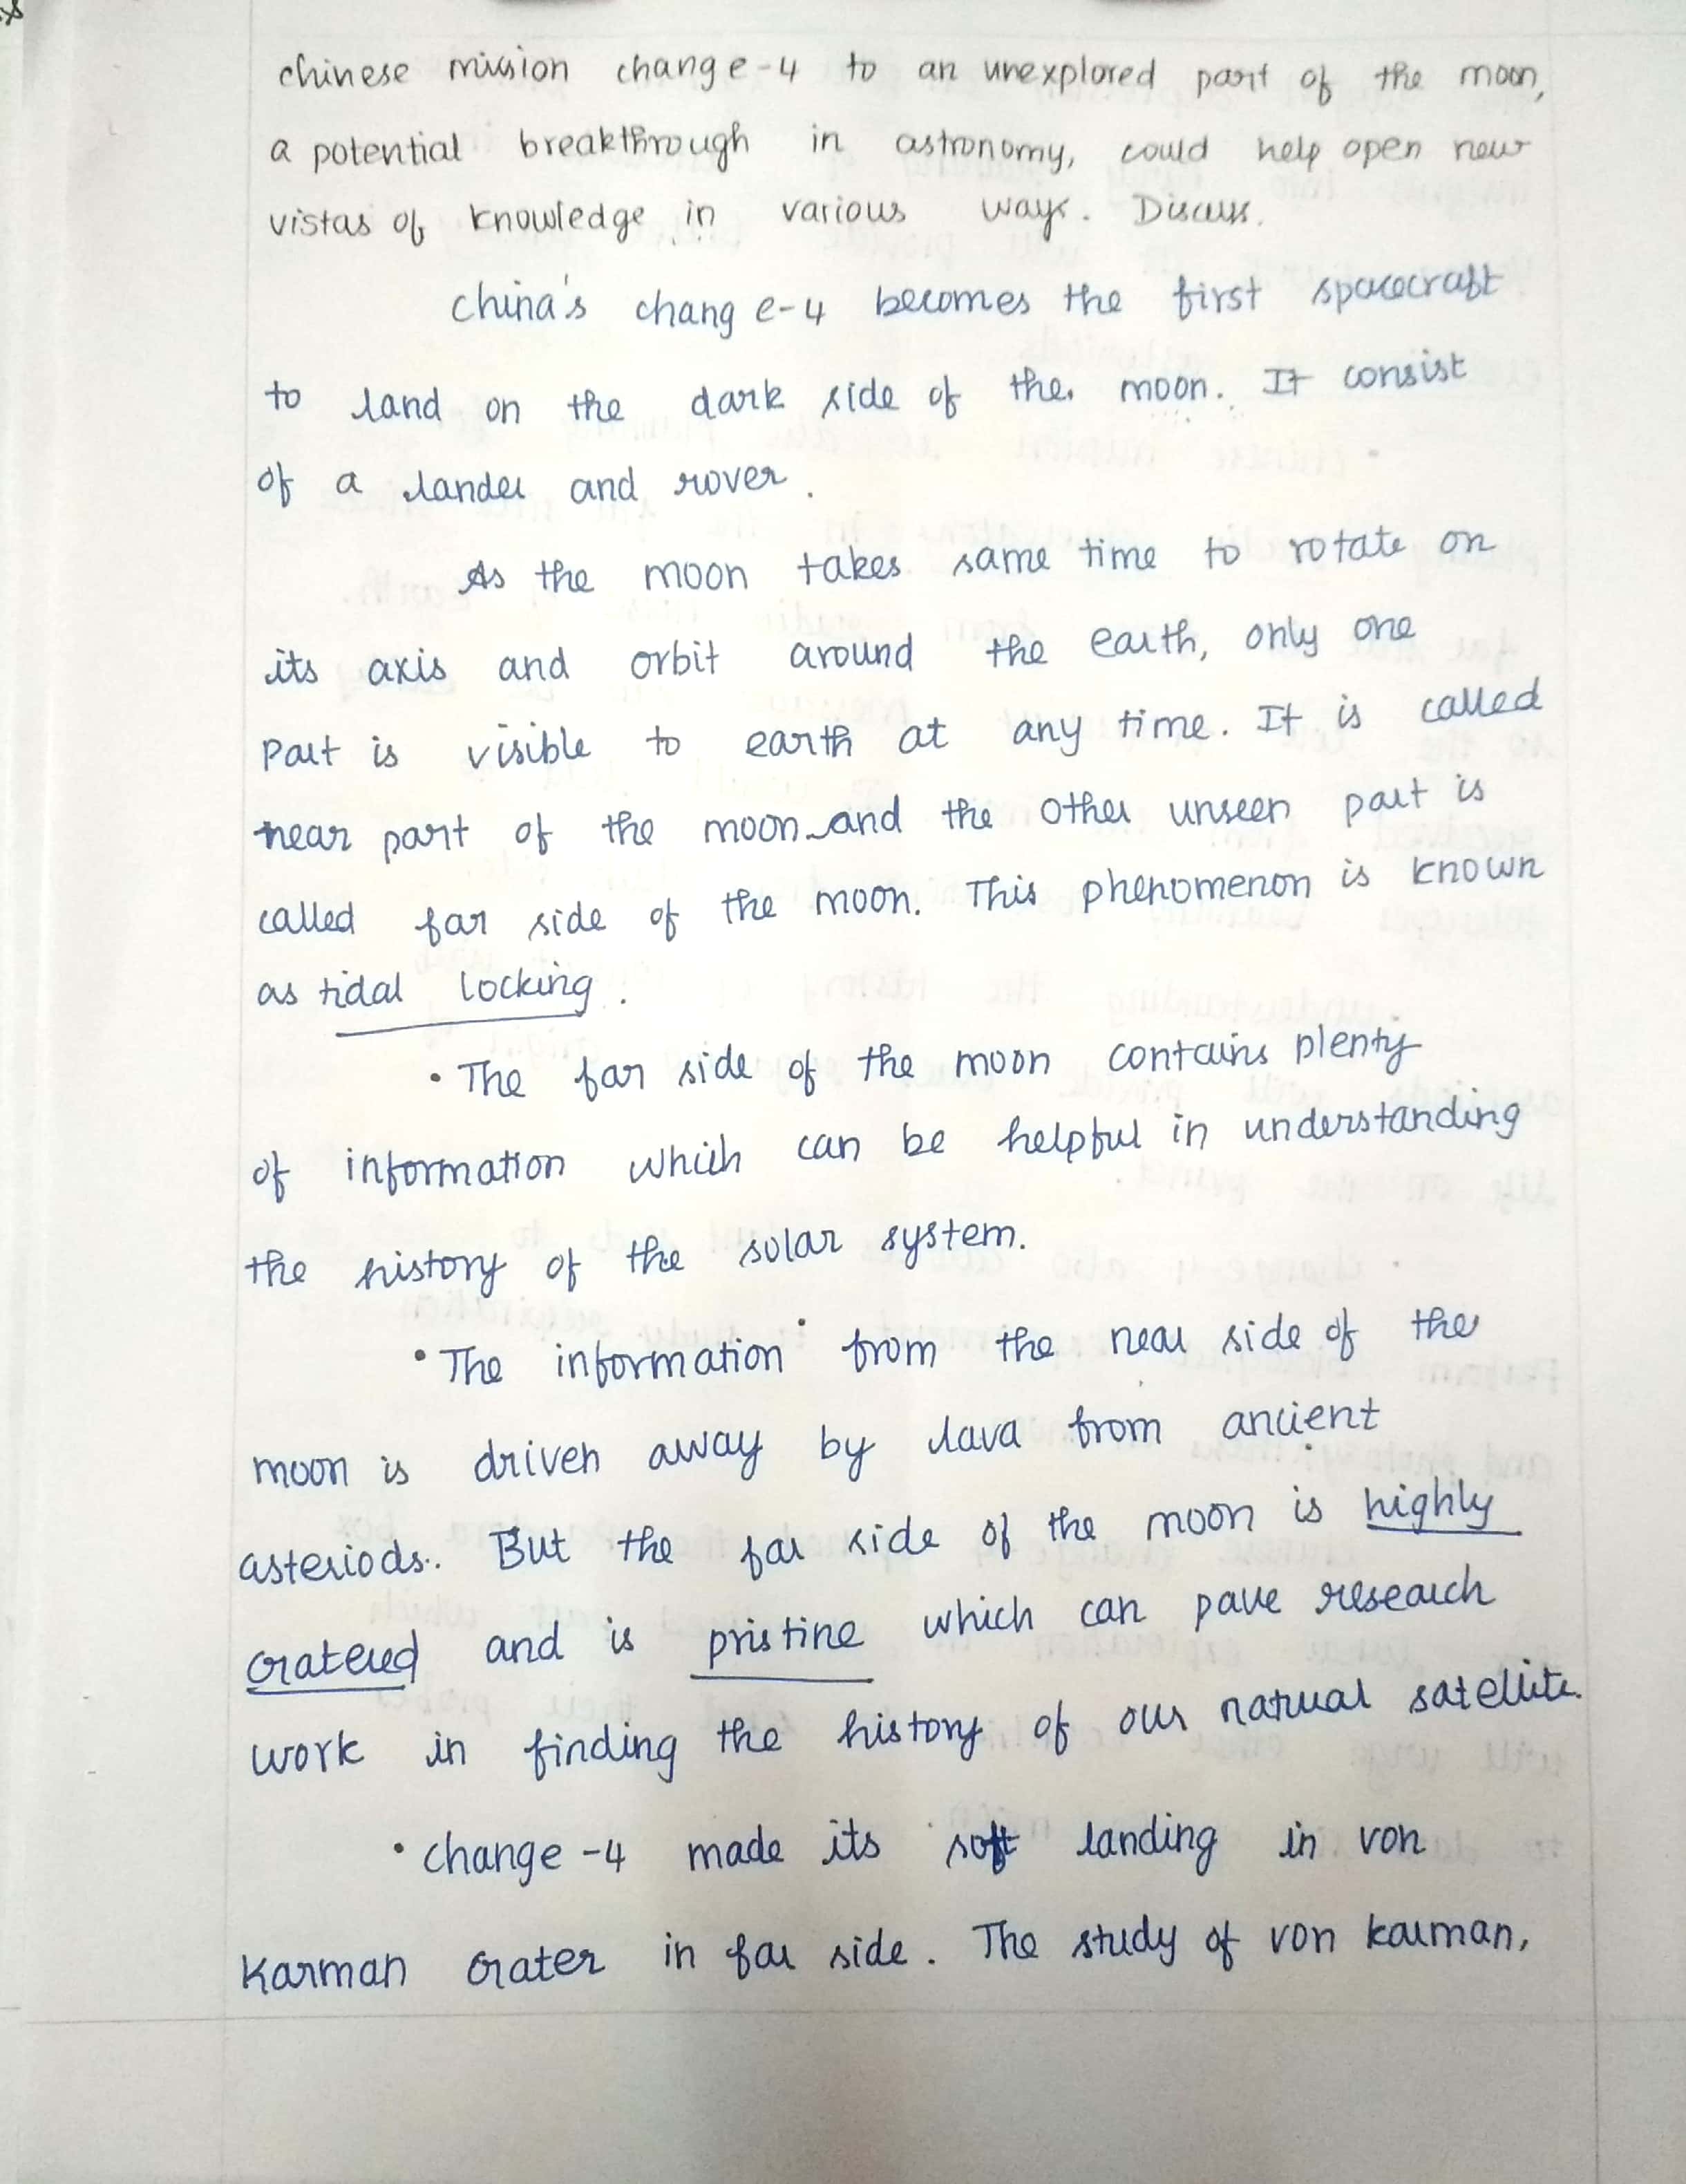 chinese mission change-4 to an unexplored part of the moon,
a potential breakthrough in astronomy, could help open new
vistas of knowledge in various ways. Discuss.
China's chang e-4 becomes the first spacecraft
to land on the dark side of the moon. It consist
of a lander and rover.
As the moon takes same time to rotate on
its axis and orbit around the earth, only one
part is visible to earth at any time. It is called
near part of the moon and the other unseen part is
called far side of the moon. This phenomenon is known
as tidal locking.
• The far side of the moon contains plenty
of information which can be helpful in understanding
the history of the solar system.
• The information from the near side of the
moon is driven away by lava from ancient
asteriods. But the far side of the moon is highly
cratered and is pristine which can pave research
work in finding the history of our natural satellite.
• change-4 made its soft landing in von
Karman crater in far side. The study of von karman,